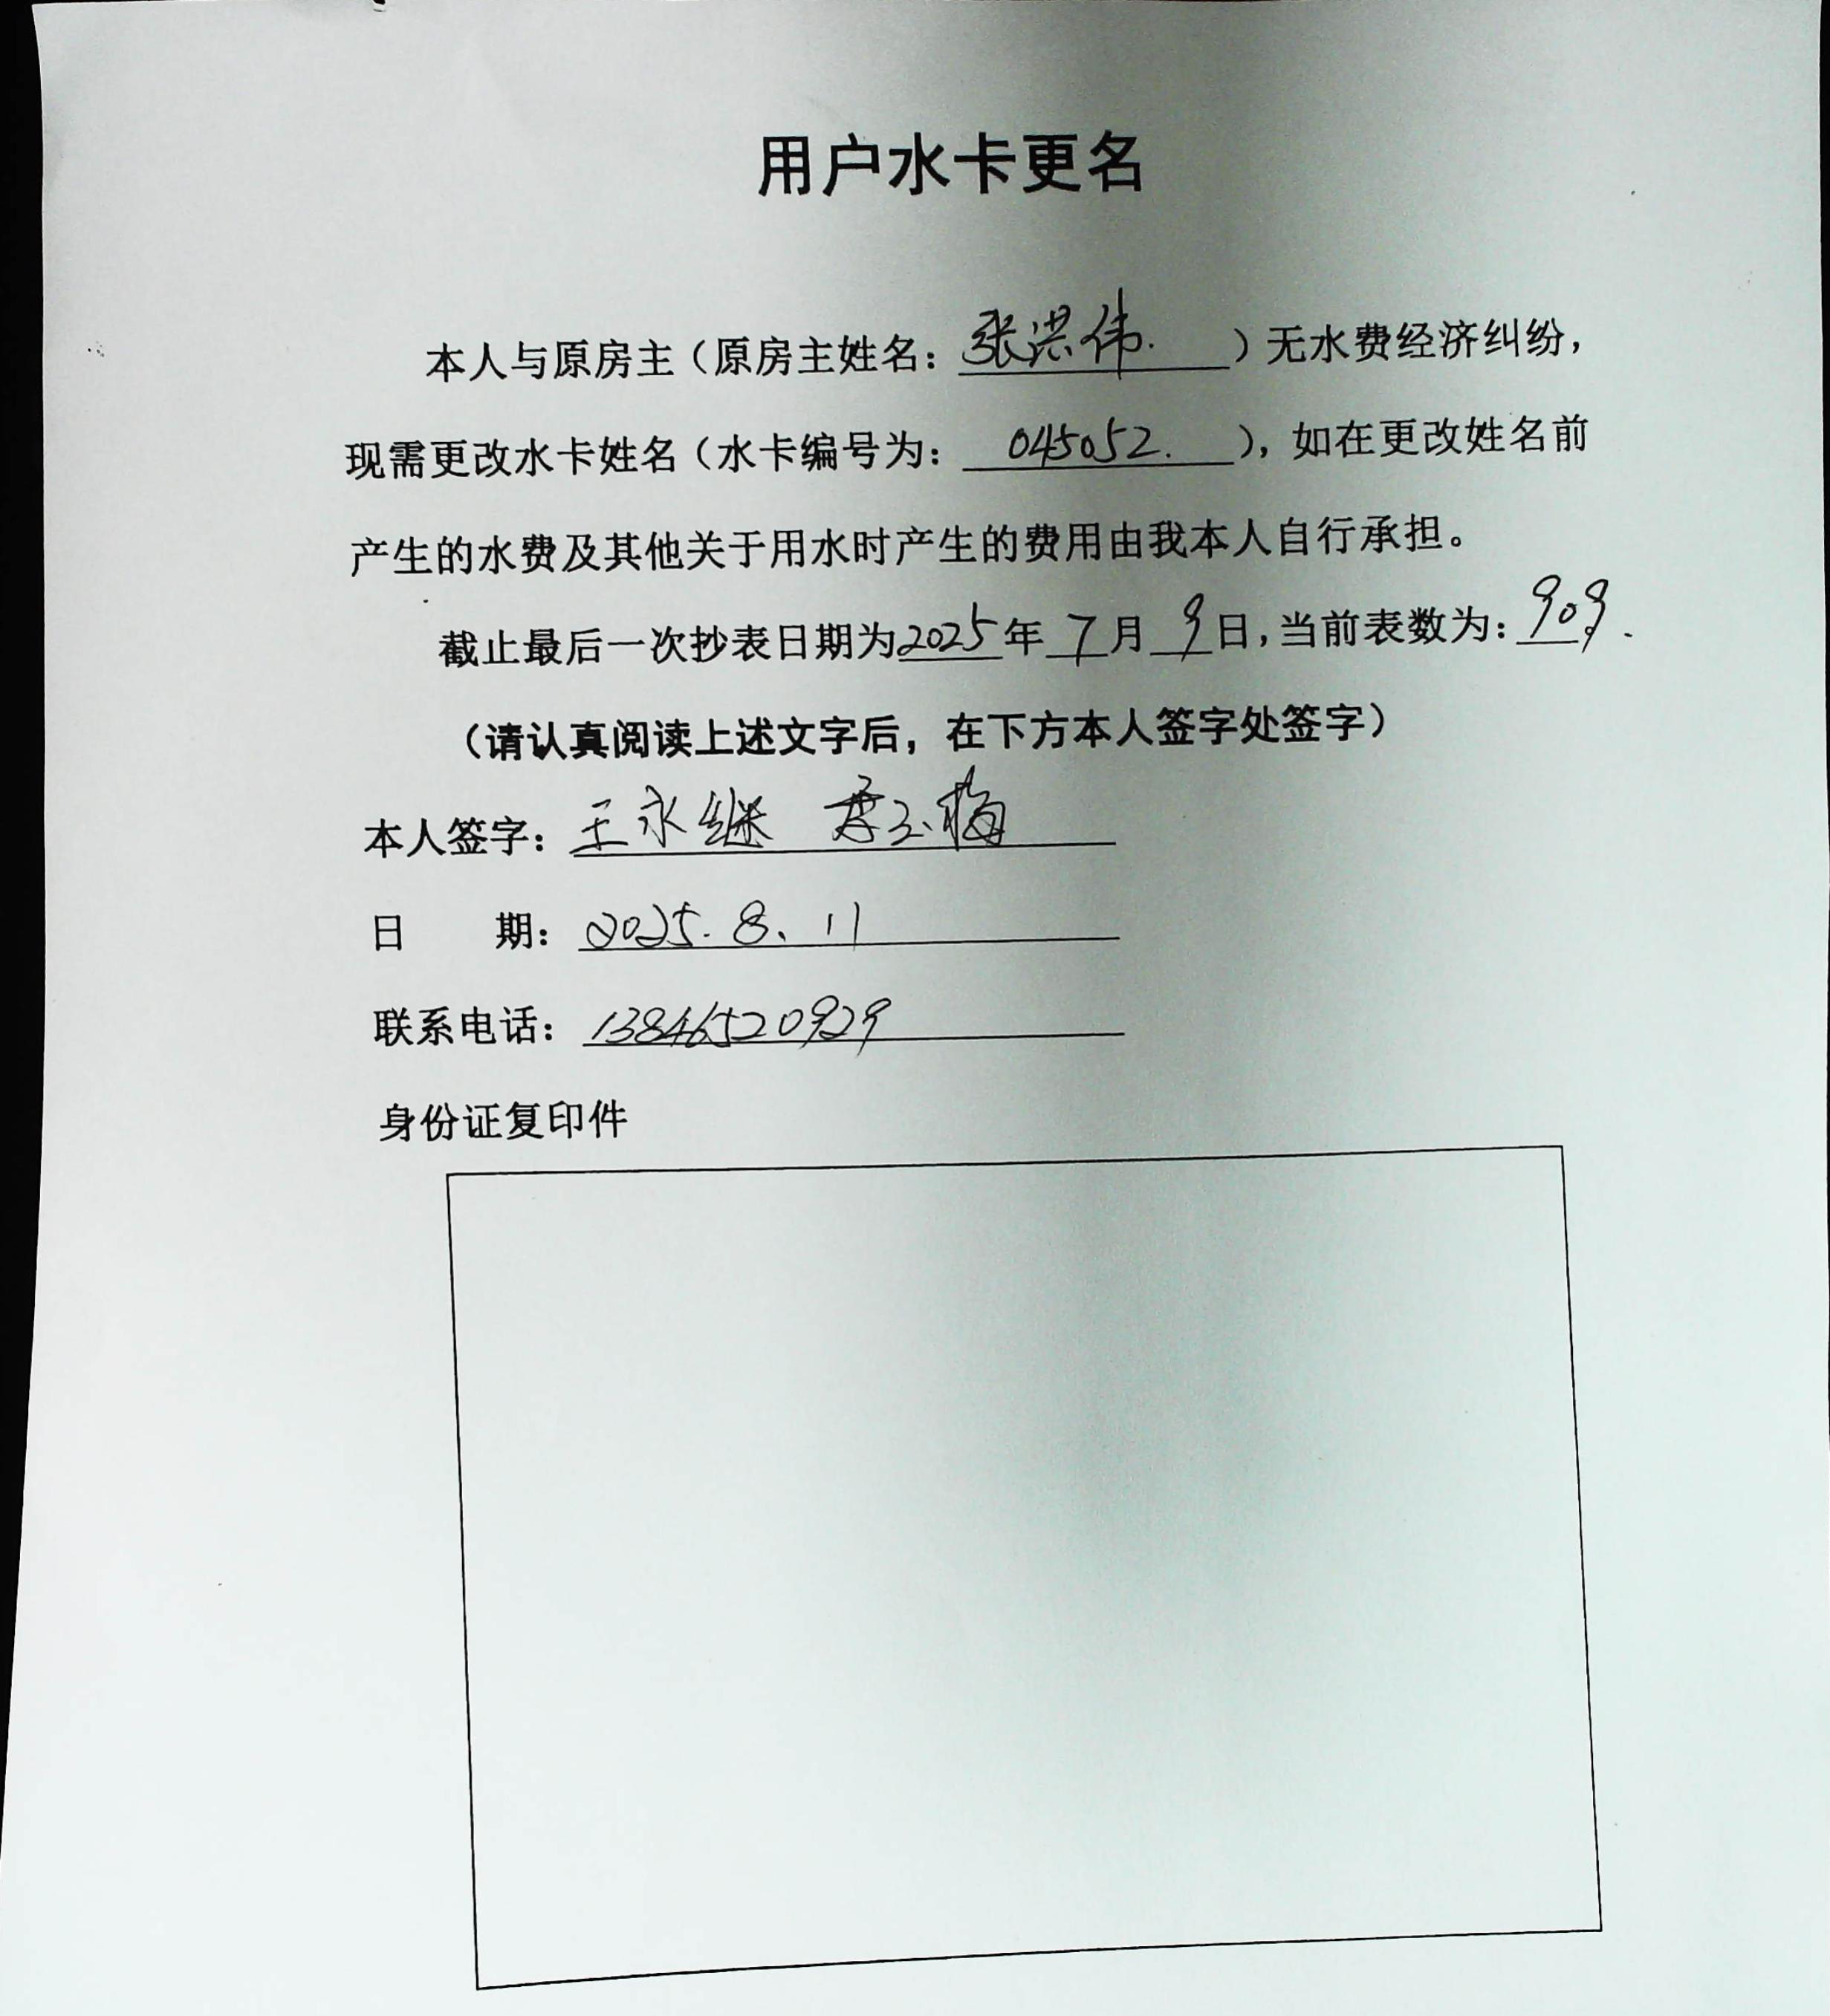 用户水卡更名
本人与原房主（原房主姓名：张洪伟.）无水费经济纠纷，
现需更改水卡姓名（水卡编号为：045052.），如在更改姓名前
产生的水费及其他关于用水时产生的费用由我本人自行承担。
截止最后一次抄表日期为2025年7月9日，当前表数为：909.
（请认真阅读上述文字后，在下方本人签字处签字）
本人签字：王永继 玉梅
日 期：2025.8、11
联系电话：13846520929
身份证复印件